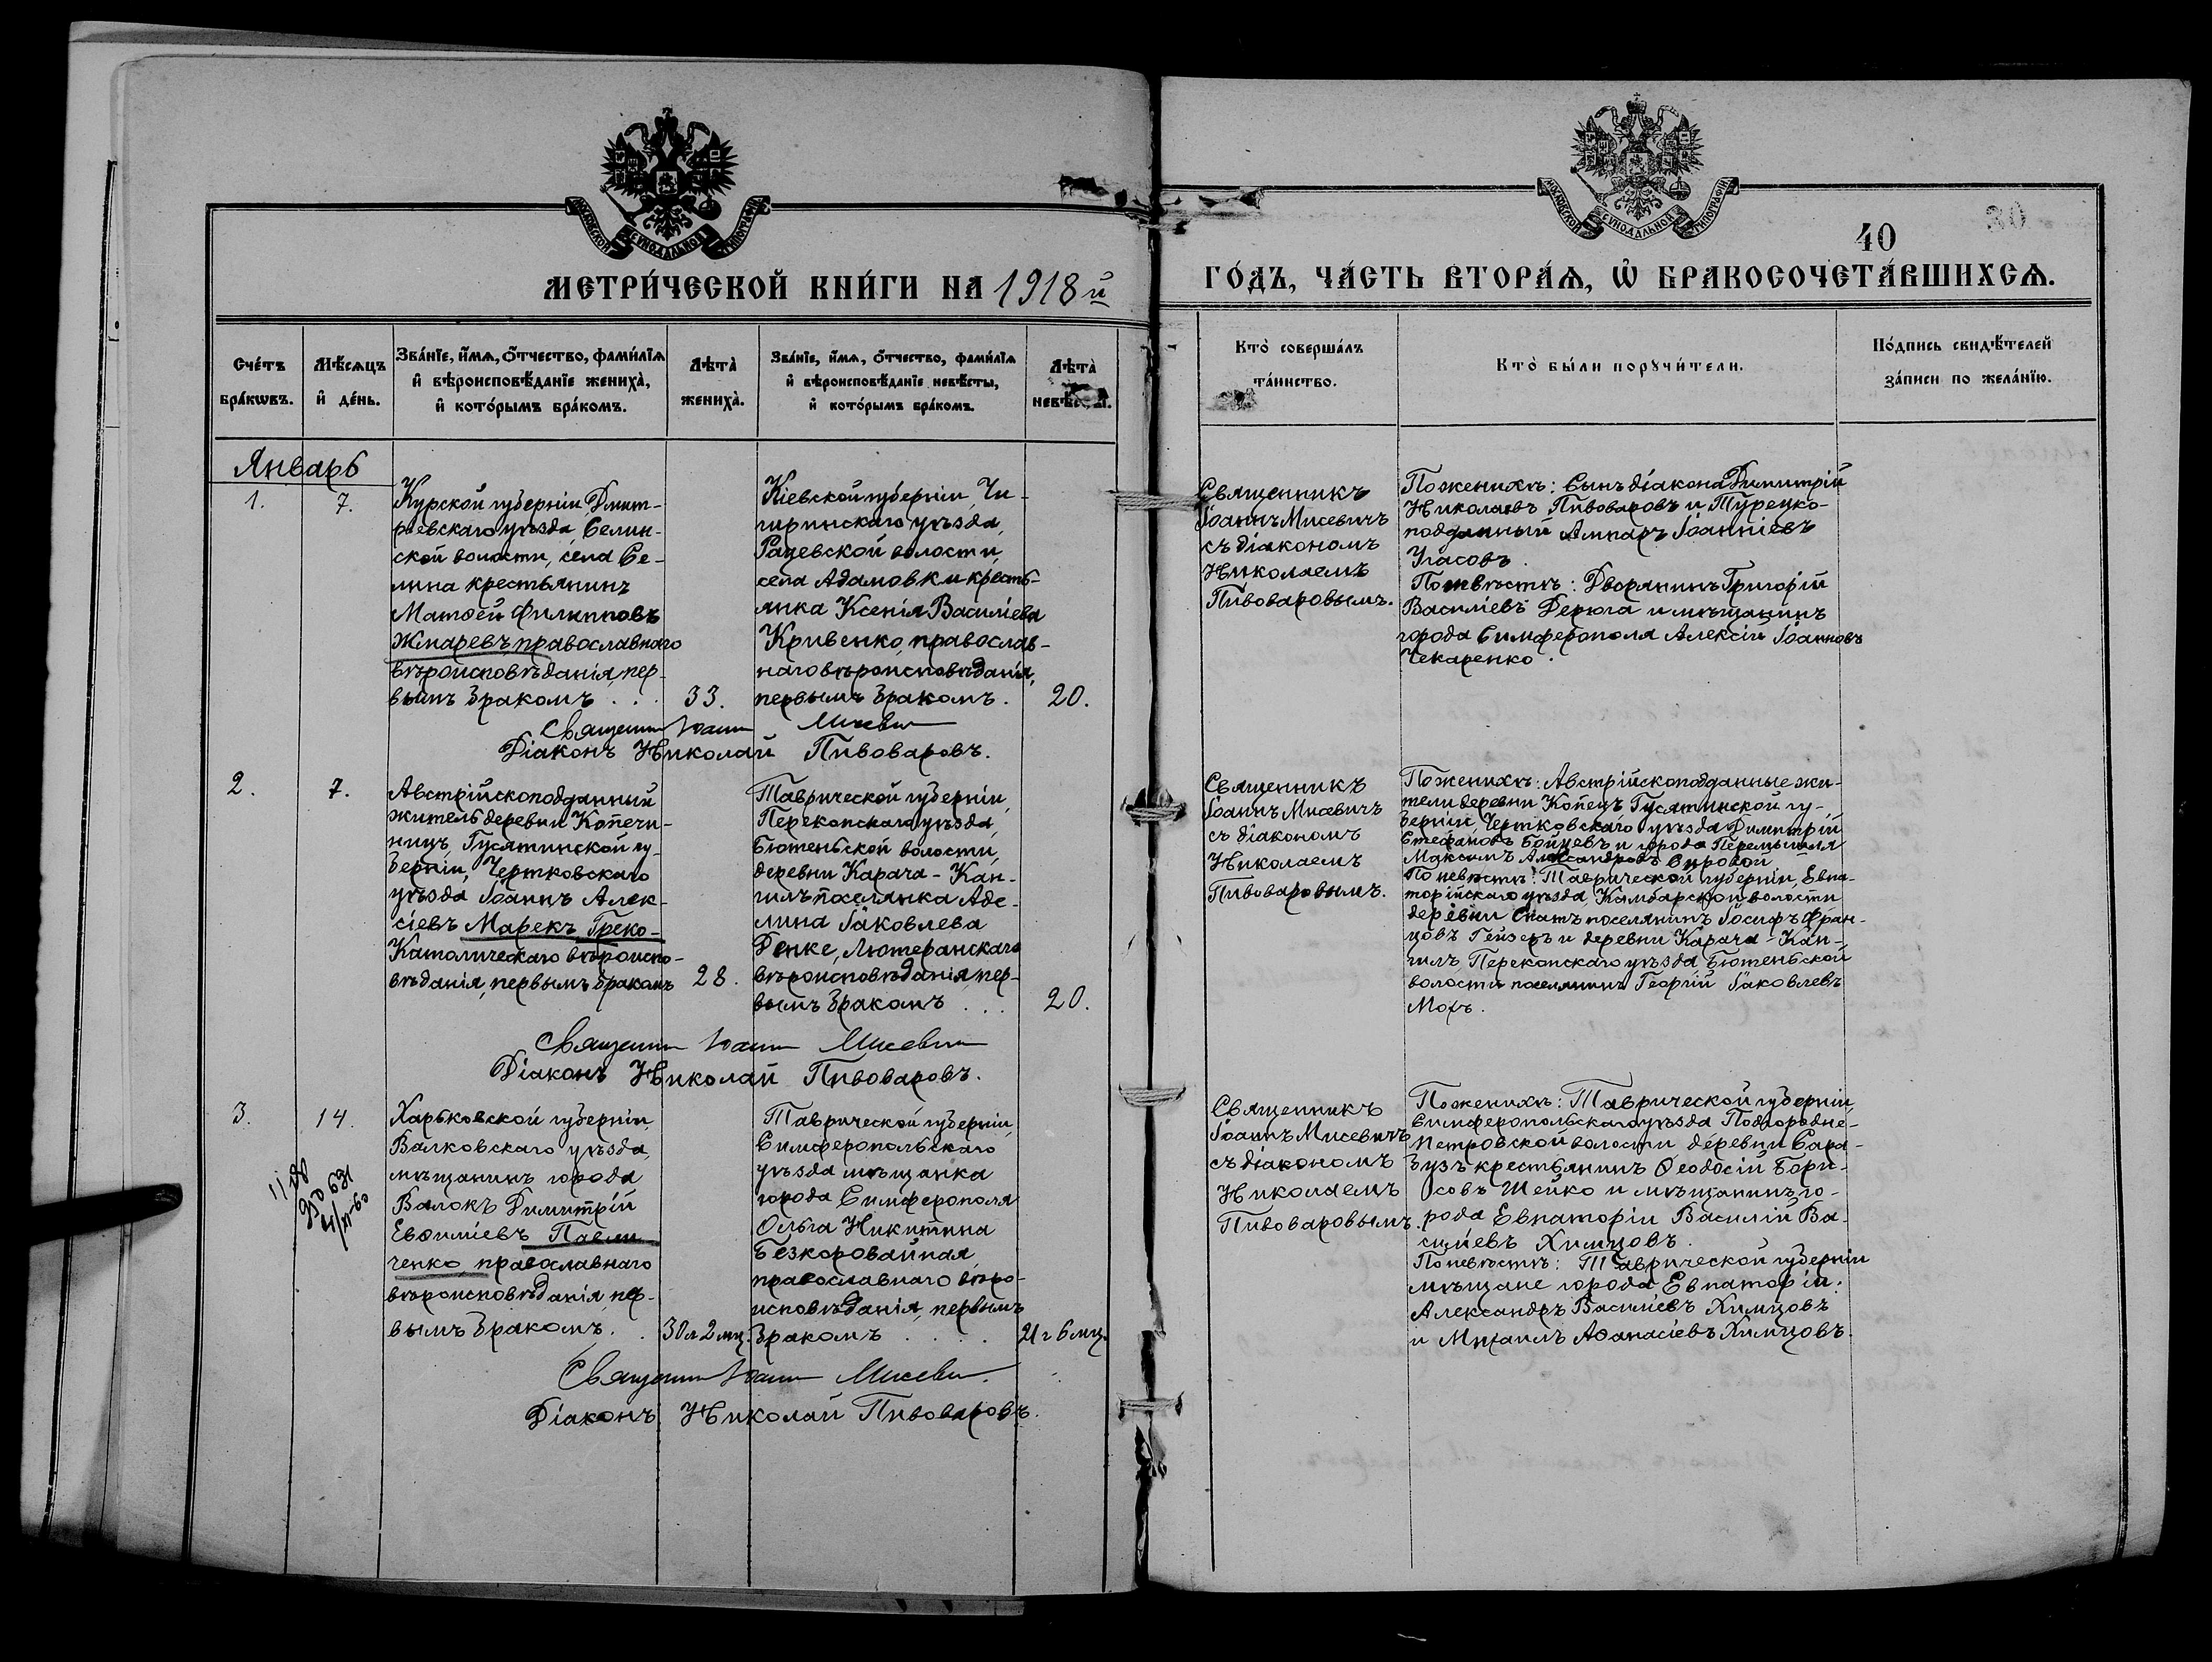 МОСКОВСКОЙ СѴНОДАЛЬНОЙ ТИПОГРАФІИ
МЕТРИ́ЧЕСКОЙ КНИ́ГИ НА 1918 й
Сче́тъ бра́кѡвъ.
Мѣ́сѧцъ и҆ де́нь.
Зва́нїе, и҆́мѧ, о҆́тчество, фами́лїѧ и҆ вѣроисповѣ́данїе жениха̀, и҆ кото́рымъ бра́комъ.
Лѣта̀ жениха̀.
Зва́нїе, и҆́мѧ, о҆́тчество, фами́лїѧ и҆ вѣроисповѣ́данїе невѣ́сты, и҆ кото́рымъ бра́комъ.
Лѣта̀ невѣ́сты.
Январь
1.
7.
Курской губерніи Дмит-
ріевскаго уѣзда, Селин-
ской волости, села Се-
лина крестьянинъ
Матѳей Филипповъ
Жмаревъ, православнаго
вѣроисповѣданія, пер-
вымъ бракомъ . . .
33.
Кіевской губерніи, Чи-
гиринскаго уѣзда,
Рацевской волости,
села Адамовки кресть-
янка Ксенія Василіева
Кривенко, православ-
наго вѣроисповѣданія,
первымъ бракомъ.
20.
Священник Іоанн Мисевич
Діаконъ Николай Пивоваровъ.
2.
7.
Австрійскоподданный
житель деревни Копечи-
ницъ, Гусятинской гу-
берніи, Чертковскаго
уѣзда Іоаннъ Алек-
сіевъ Марекъ, Греко-
Католическаго вѣроиспо-
вѣданія, первымъ бракомъ
28.
Таврической губерніи,
Перекопскаго уѣзда,
Бютеньской волости,
деревни Карача-Кан-
гилъ поселянка Аде-
лина Іаковлева
Денке, Лютеранскаго
вѣроисповѣданія, пер-
вымъ бракомъ . . .
20.
Священник Іоанн Мисевич
Діаконъ Николай Пивоваровъ.
3.
14.
Харьковской губерніи,
Валковскаго уѣзда,
мѣщанинъ города
Валокъ Димитрій
Евѳиміевъ Павли-
ченко, православнаго
вѣроисповѣданія, пер-
вымъ бракомъ. .
30 л 2 мц.
Таврической губерніи,
Симферопольскаго
уѣзда мѣщанка
города Симферополя
Ольга Никитина
Безкоровайная,
православнаго вѣро-
исповѣданія, первымъ
бракомъ . . . .
21 г 6 мц.
Священник Іоанн Мисевич.
Діаконъ Николай Пивоваровъ.
МОСКОВСКОЙ СѴНОДАЛЬНОЙ ТИПОГРАФІИ
40
30
ГО́ДЪ, ЧА́СТЬ ВТОРА́Ѧ, Ѡ҆ БРАКОСОЧЕТА́ВШИХСѦ.
Кто̀ соверша́лъ та́инство.
Кто̀ бы́ли порꙋчи́тели.
По́дпись свидѣ́телей за́писи по жела́нїю.
Священникъ
Іоаннъ Мисевичъ
съ діакономъ
Николаемъ
Пивоваровымъ.
По женихѣ: Сынъ діакона Димитрій
Николаевъ Пивоваровъ и Турецко-
подданный Іоанніевъ
Угасовъ.
По невѣстѣ: Дворянинъ Григорій
Василіевъ Дерюга и мѣщанинъ
города Симферополя Алексій Іоанновъ
Чекаренко.
Священникъ
Іоаннъ Мисевичъ
съ діакономъ
Николаемъ
Пивоваровымъ.
По женихѣ: Австрійскоподданные жи-
тели деревни Копецъ Гусятинской гу-
берніи, Чертковскаго уѣзда Димитрій
Стефановъ Бойцевъ и города Перемышля
Максимъ Александровъ Сировой
По невѣстѣ: Таврической губерніи, Евпа-
торійскаго уѣзда Камбарской волости
деревни Спатъ поселянинъ Іосифъ Фран-
цовъ Гейзеръ и деревни Карача-Кан-
гилъ, Перекопскаго уѣзда, Бютеньской
волости поселянинъ Георгій Іаковлевъ
Мохъ.
Священникъ
Іоаннъ Мисевичъ
съ діакономъ
Николаемъ
Пивоваровымъ.
По женихѣ: Таврической губерніи,
Симферопольскаго уѣзда Подгородне-
Петровской волости деревни Сара-
бузъ крестьянинъ Ѳеодосій Бори-
совъ Шейко и мѣщанинъ го-
рода Евпаторіи Василій Ва-
силіевъ Химцовъ.
По невѣстѣ: Таврической губерніи
мѣщане города Евпаторіи:
Александръ Василіевъ Химцовъ
и Михаилъ Аѳанасіевъ Химцовъ.